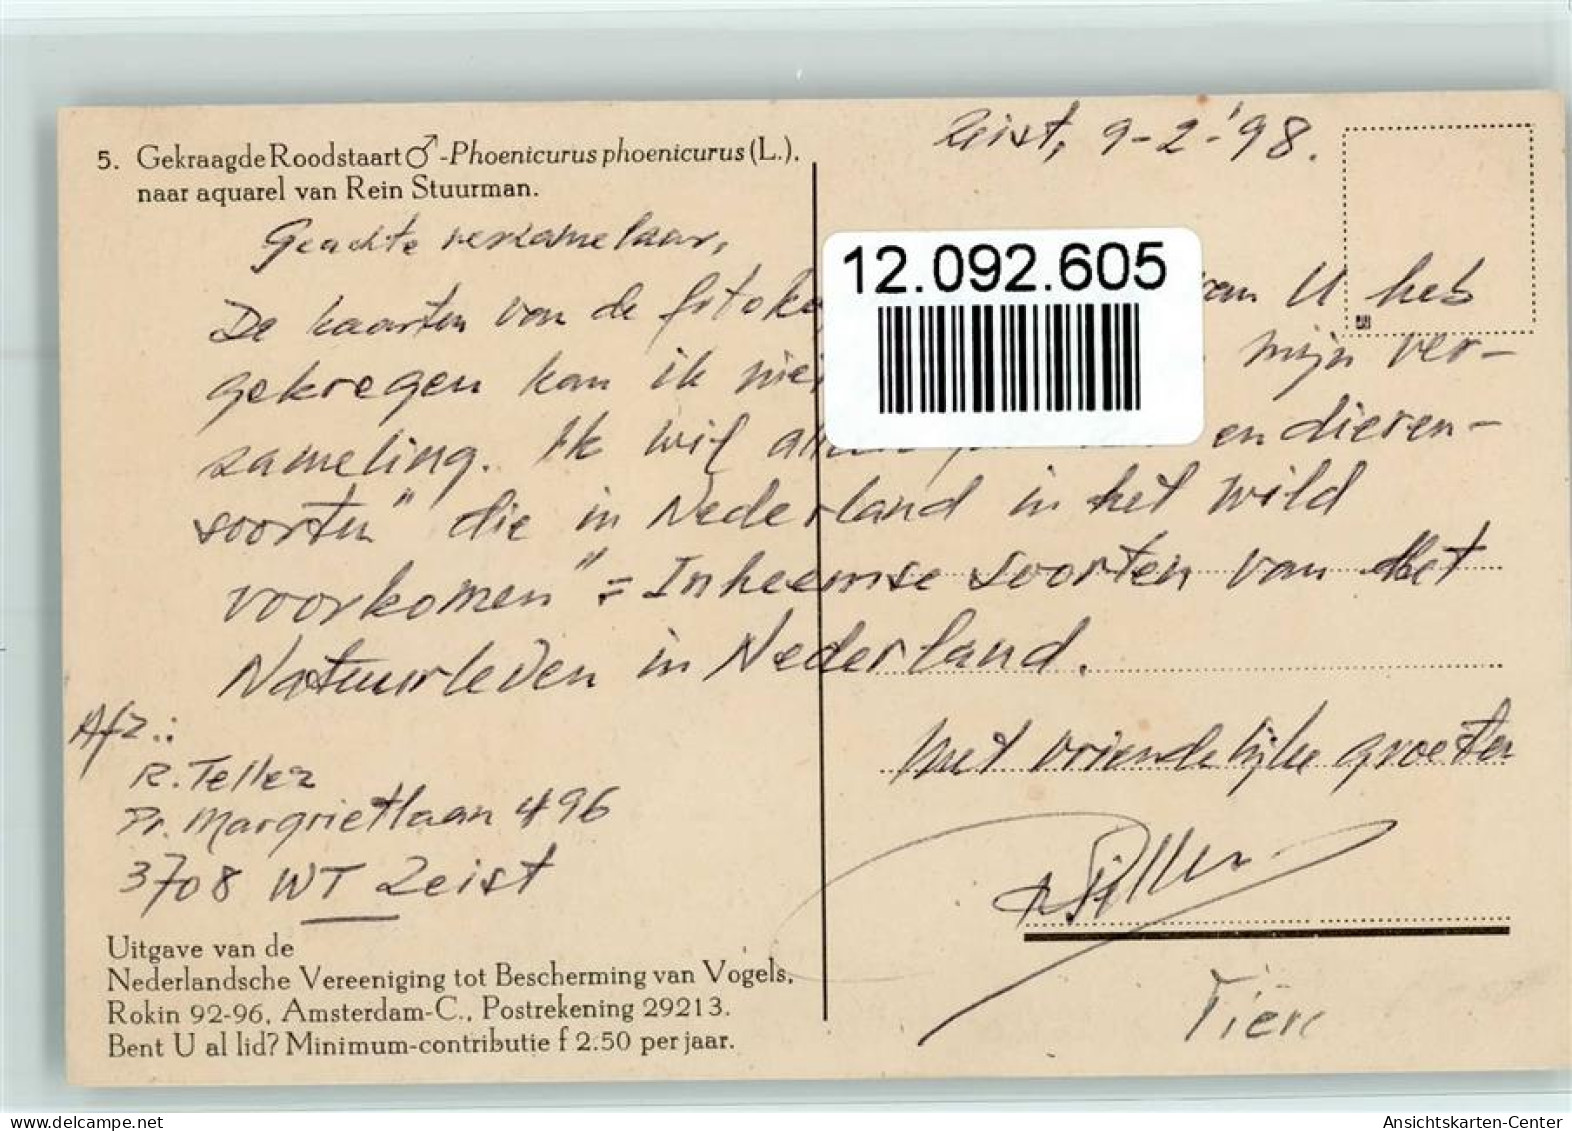 5. Gekraagde Roodstaart ♂ - Phoenicurus phoenicurus (L.),
naar aquarel van Rein Stuurman.
Zeist, 9-2-'98.
Geachte verzamelaar,
De kaarten van de van U heb
gekregen kan ik mijn ver-
zameling. Ik wil en dieren-
soorten" die in Nederland in het wild
voorkomen" = Inheemse soorten van Het
Natuurleven in Nederland.
Met vriendelijke groeten
R. Teller
Afz.:
R. Teller
Pr. Margrietlaan 496
3708 WT Zeist
Uitgave van de
Nederlandsche Vereeniging tot Bescherming van Vogels,
Rokin 92-96, Amsterdam-C., Postrekening 29213.
Bent U al lid? Minimum-contributie f 2.50 per jaar.
Tiere
12.092.605
delcampe.net
bymcz
Ansichtskarten-Center